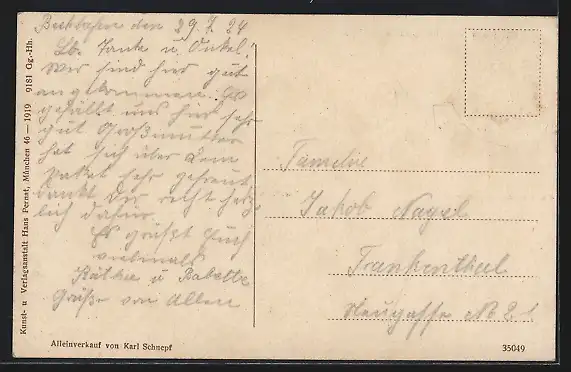 Kunst- u Verlagsanstalt Hans Pernat, München 46 — 1919 9181 Gg.-Hn.
den 29.7.24
Lb. Tante u. Onkel!
Wir sind hier gut
angekommen. Es
gefällt uns hier sehr
gut Großmutter
hat sich über dem
Paket sehr gefreut
dankt Dir recht herz
lich dafür.
Es grüßt Euch
vielmals
Käthe u Babette
Grüße von Allen
Familie
Jakob Nagel
Frankenthal
Neugasse No 21
Alleinverkauf von Karl Schnepf
35049